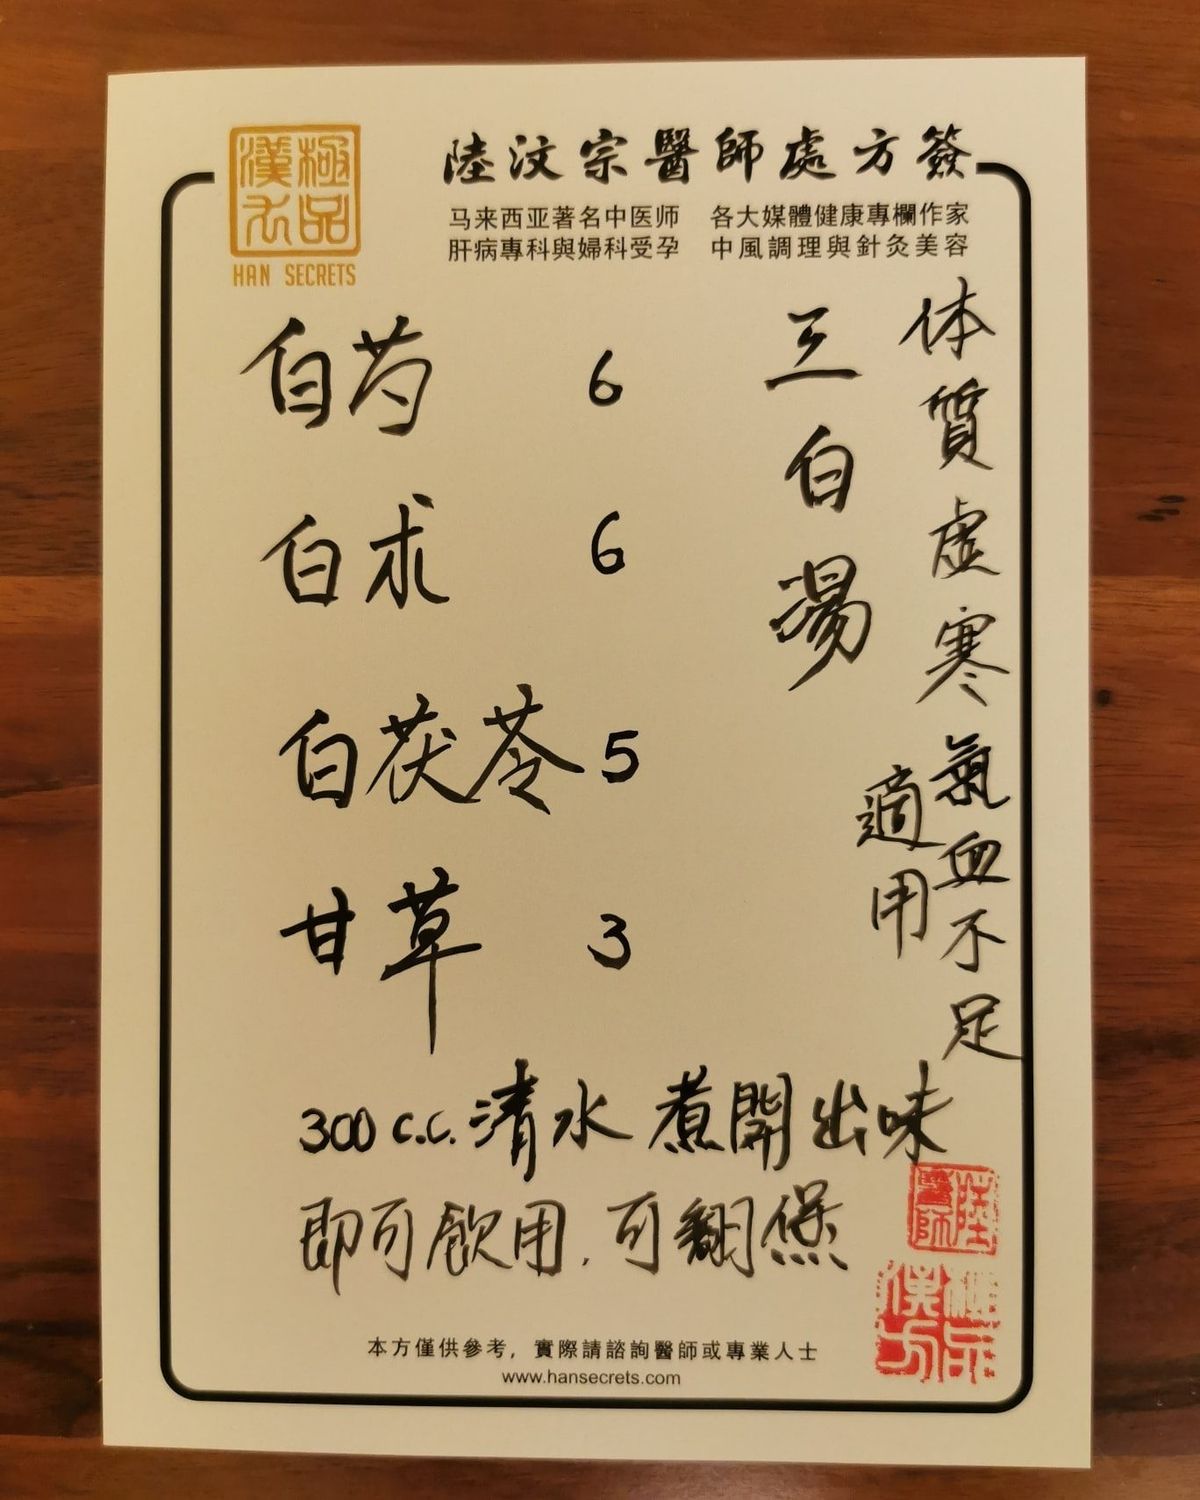 極品
漢方
HAN SECRETS
陸汶宗醫師處方簽
马来西亚著名中医师 各大媒體健康專欄作家
肝病專科與婦科受孕 中風調理與針灸美容
体質虛寒氣血不足
適用
三白湯
白芍 6
白术 6
白茯苓 5
甘草 3
300 c.c. 清水 煮開出味
即可飲用,可翻煲
陸醫師
極品
漢方
本方僅供參考,實際請諮詢醫師或專業人士
www.hansecrets.com